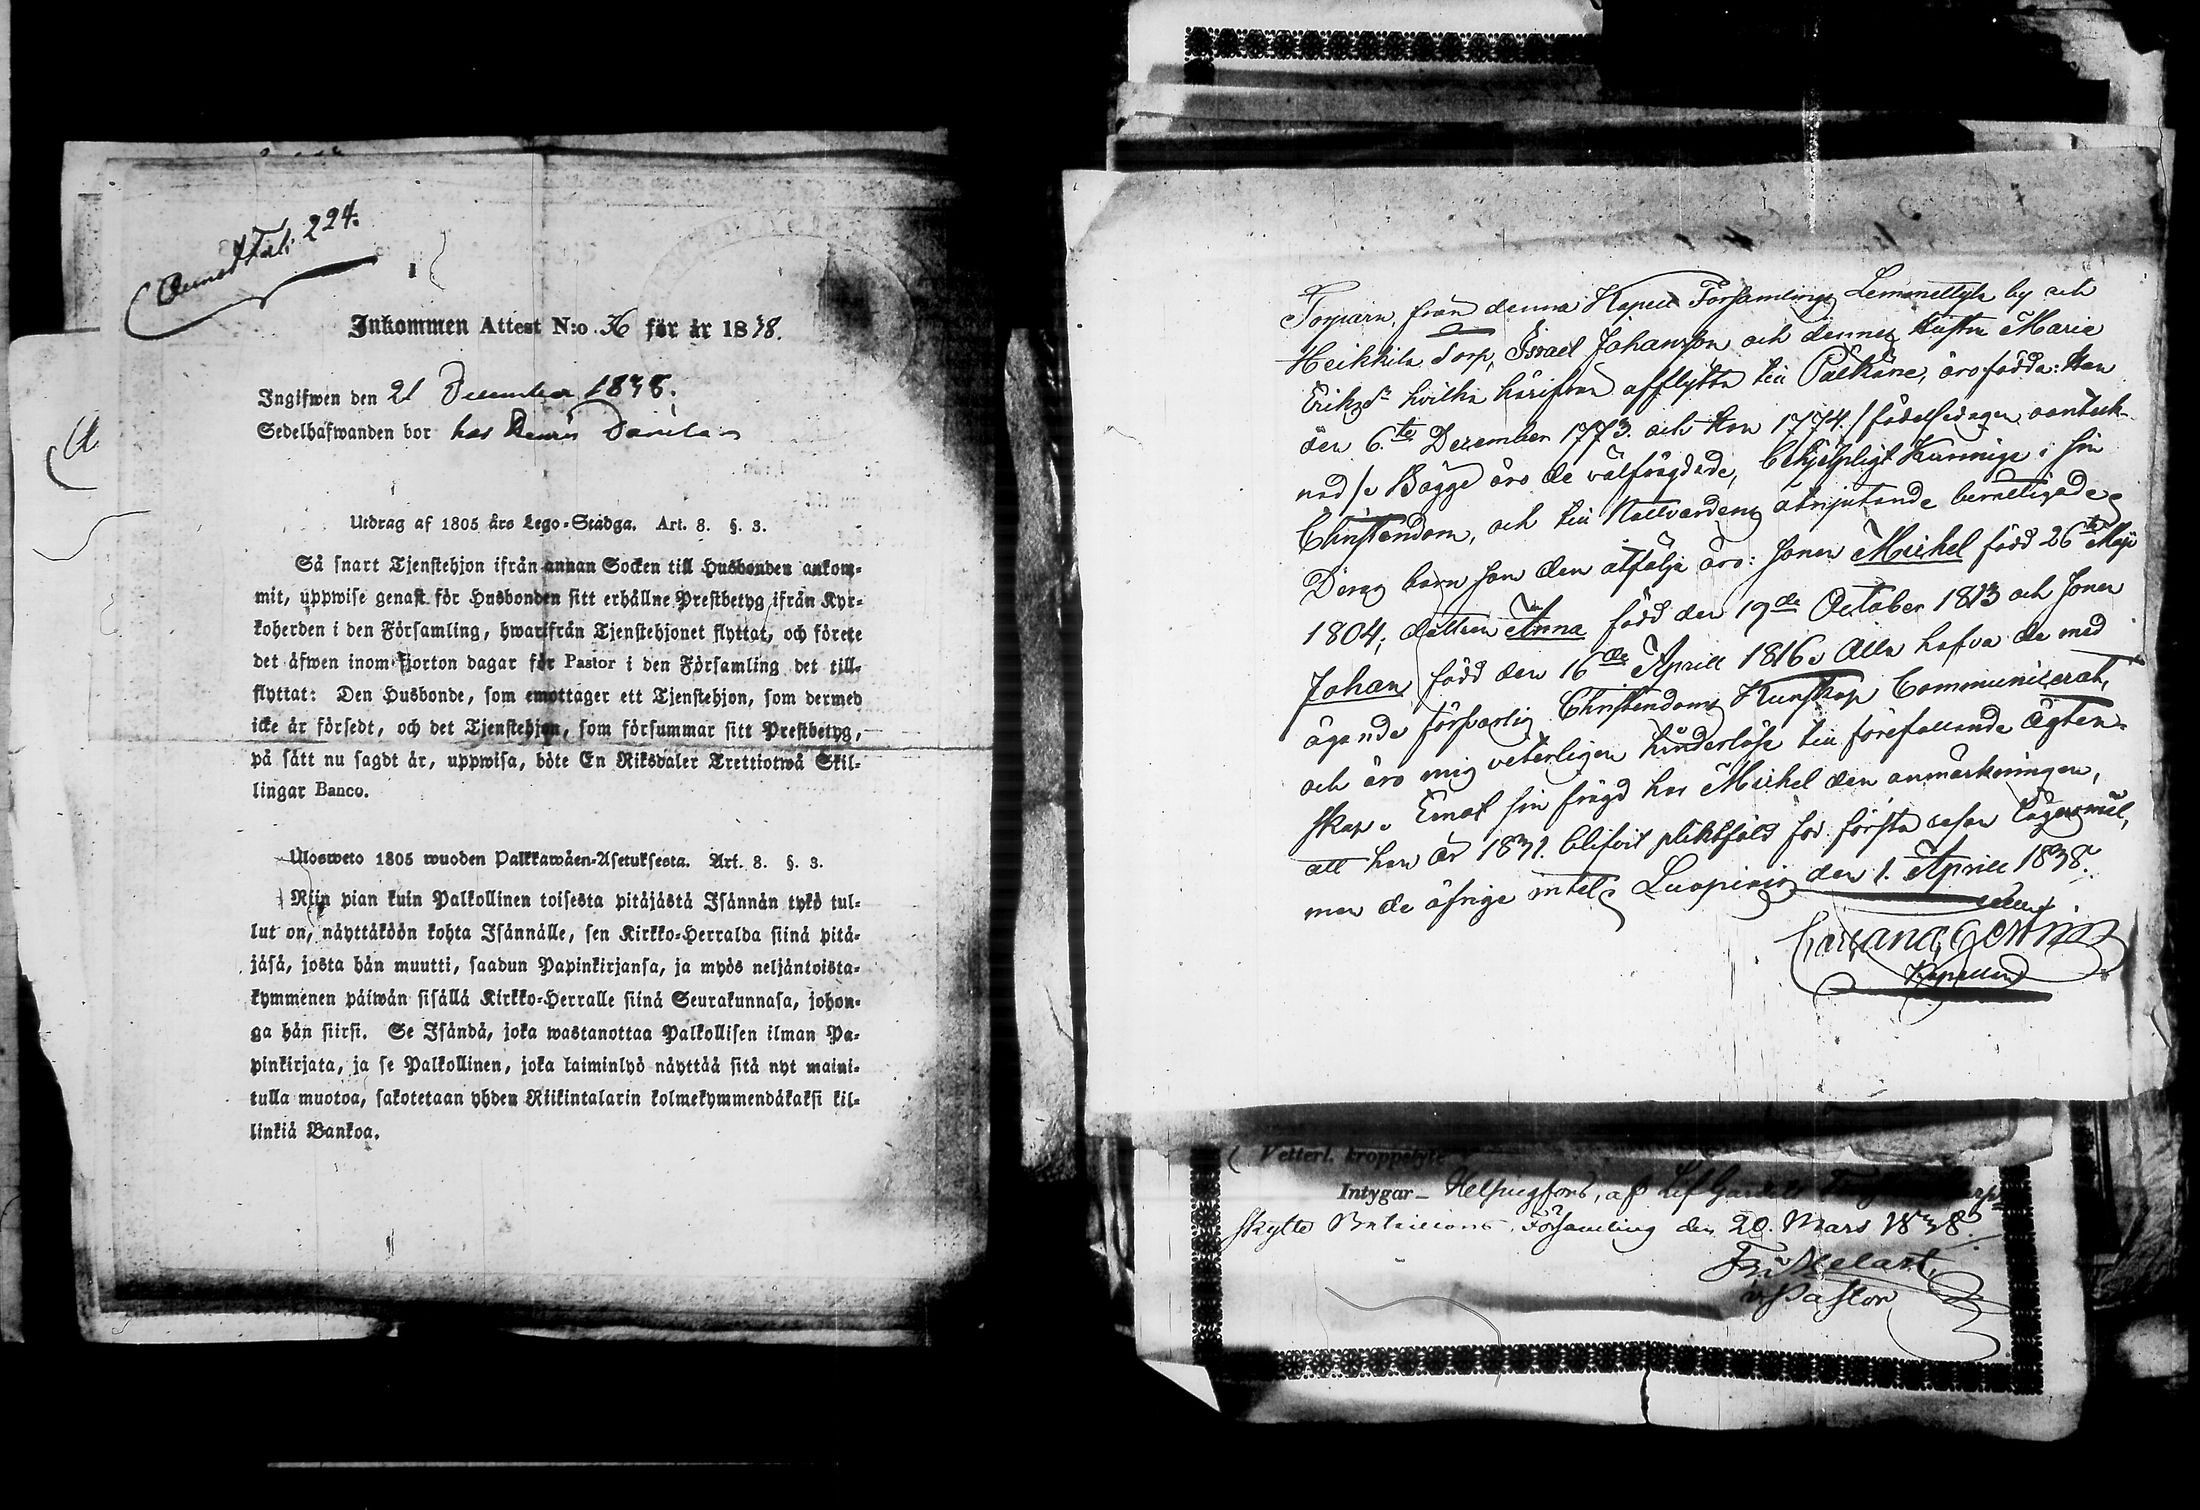 224.
Inkommen Attest N:o 36 för år 1838.
Ingifwen den 21 December 1838.
Sedelhafwanden bor hos
Utdrag af 1805 års Lego-Stadga. Art. 8. §. 3.
Så snart Tjenstehjon ifrån annan Socken till Husbonden ankom-
mit, uppwise genast för Husbonden sitt erhållne Prestbetyg ifrån Kyr-
koherden i den Församling, hwarifrån Tjenstehjonet flyttat, och förete
det äfwen inom fjorton dagar för Pastor i den Församling det till-
flyttat: Den Husbonde, som emottager ett Tjenstehjon, som dermed
icke är försedt, och det Tjenstehjon, som försummar sitt Prestbetyg,
på sätt nu sagdt är, uppwisa, böte En Riksdaler Trettiotwå Skil-
lingar Banco.
Ulosweto 1805 wuoden Palkkawäen-Asetuksesta. Art. 8. §. 3.
Niin pian kuin Palkollinen toisesta pitäjästä Isännän tykö tul-
lut on, näyttäköön kohta Isännälle, sen Kirkko-Herralda siinä pitä-
jäsä, josta hän muutti, saadun Papinkirjansa, ja myös neljäntoista-
kymmenen päiwän sisällä Kirkko-Herralle siinä Seurakunnasa, johon-
ga hän siirsi. Se Isändä, joka wastanottaa Palkollisen ilman Pa-
pinkirjata, ja se Palkollinen, joka laiminlyö näyttää sitä nyt maini-
tulla muotoa, sakotetaan yhden Riikintalarin kolmekymmendäkaksi kil-
linkiä Bankoa.
Torparn från denna Kapell Församlings Lemmettylä by och
Heikkilä Torp, Israel Johansson och dennes hustru Maria
Eriksdr hvilka härifrån afflytta till Pälkäne, äro födda: Han
den 6.te December 1773. och Hon 1774. /: födelsedagen oanteck-
nad :/. Bägge äro de välfrägdade, behjelpligt kunnige i sin
Christendom, och till Nattvardens åtnjutande berättigade.
Deras barn som dem åtfölja äro: sonen Michel född 26te Maji
1804, dottren Anna född den 19de October 1813 och sonen
Johan född den 16de Aprill 1816. Alla hafva de med
ägande försvarlig Christendoms Kunskap Communicerat,
och äro mig veterligen hinderlöse till förefallande Ägten-
skap. Emot sin frägd har Michel den anmärkningen,
att han år 1831. blifvit pliktfäld för första resan lägersmål,
men de öfrige intet. Luopiois den 1. Aprill 1838.
Kapellan
Vetterl. kroppslyte
Intygar Helsingfors, af Lif Gardets
skytte Bataillons Församling den 20. Mars 1838.
v. Pastor